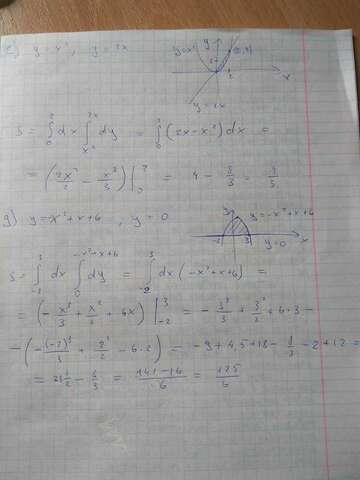 y = x², y = 2x
y = x² y (2,4)
2 x
y = 2x
S = ∫₀² dx ∫_{x²}^{2x} dy = ∫₀² (2x - x²) dx =
= (2x²/2 - x³/3) |₀² = 4 - 8/3 = 4/3
g) y = x² + x + 6 , y = 0
y y = -x² + x + 6
-2 3 x
y = 0
S = ∫_{-2}^{3} dx ∫₀^{-x²+x+6} dy = ∫_{-2}^{3} dx (-x² + x + 6) =
= (-x³/3 + x²/2 + 6x) |_{-2}^{3} = -3³/3 + 3²/2 + 6·3 -
- (-(-2)³/3 + 2²/2 - 6·2) = -9 + 4,5 + 18 - 8/3 - 2 + 12 =
= 23 1/2 - 8/3 = (141 - 16)/6 = 125/6